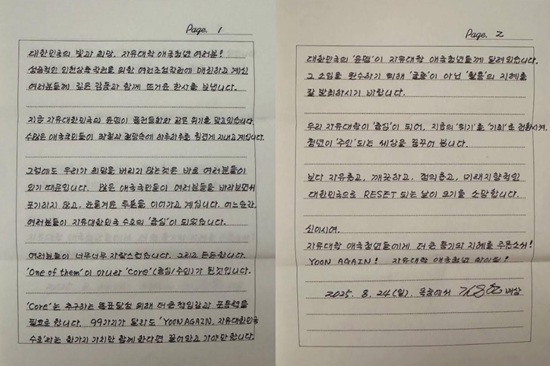 Page. 1
대한민국의 빛과 희망, 자유대학 애국청년 여러분!
여러분들께 깊은 감동과 함께 뜨거운 찬사를 보냅니다.
지금 자유대한민국의 운명이 풍전등화와 같은 위기를 맞고있습니다.
수많은 애국국민들이 좌절과 절망속에 하루하루를 힘겹게 지내고계십니다.
그럼에도 우리가 희망을 버리지 않는것은 바로 여러분들이
있기 때문입니다. 많은 애국국민들이 여러분들을 바라보면서
포기하지 않고, 눈물겨운 투혼을 이어가고 계십니다. 어느순간,
여러분들이 자유대한민국 수호의 '중심'이 되었습니다.
여러분들이 너무너무 자랑스럽습니다. 그리고 든든합니다.
'One of them'이 아니라 'Core'(중심/주인)가 된것입니다.
'Core'는 추구하는 목표달성을 위해 더 큰 책임감과 포용력을
필요로 합니다. 99가지가 달라도 'YOON AGAIN, 자유대한민국
수호'라는 한가지 가치만 함께 한다면 끌어안고 가야만 합니다.
Page. 2
대한민국의 '운명'이 자유대학 애국청년들에게 달려있습니다.
그 소임을 완수하기 위해 이 아닌 '활용'의 지혜를
잘 발휘하시기 바랍니다.
우리 자유대학이 '중심'이 되어, 지금의 '위기'를 '기회'로 전환시켜
청년이 '주인'되는 세상을 꿈꾸어 봅니다.
보다 자유롭고, 깨끗하고, 정의롭고, 미래지향적인
대한민국으로 RESET 되는 날이 오기를 소망합니다.
신이시여,
자유대학 애국청년들에게 더 큰 용기와 지혜를 주옵소서!
YOON AGAIN! 자유대학 애국청년 화이팅!
2025. 8. 24(일). 옥중에서 김용현 배상